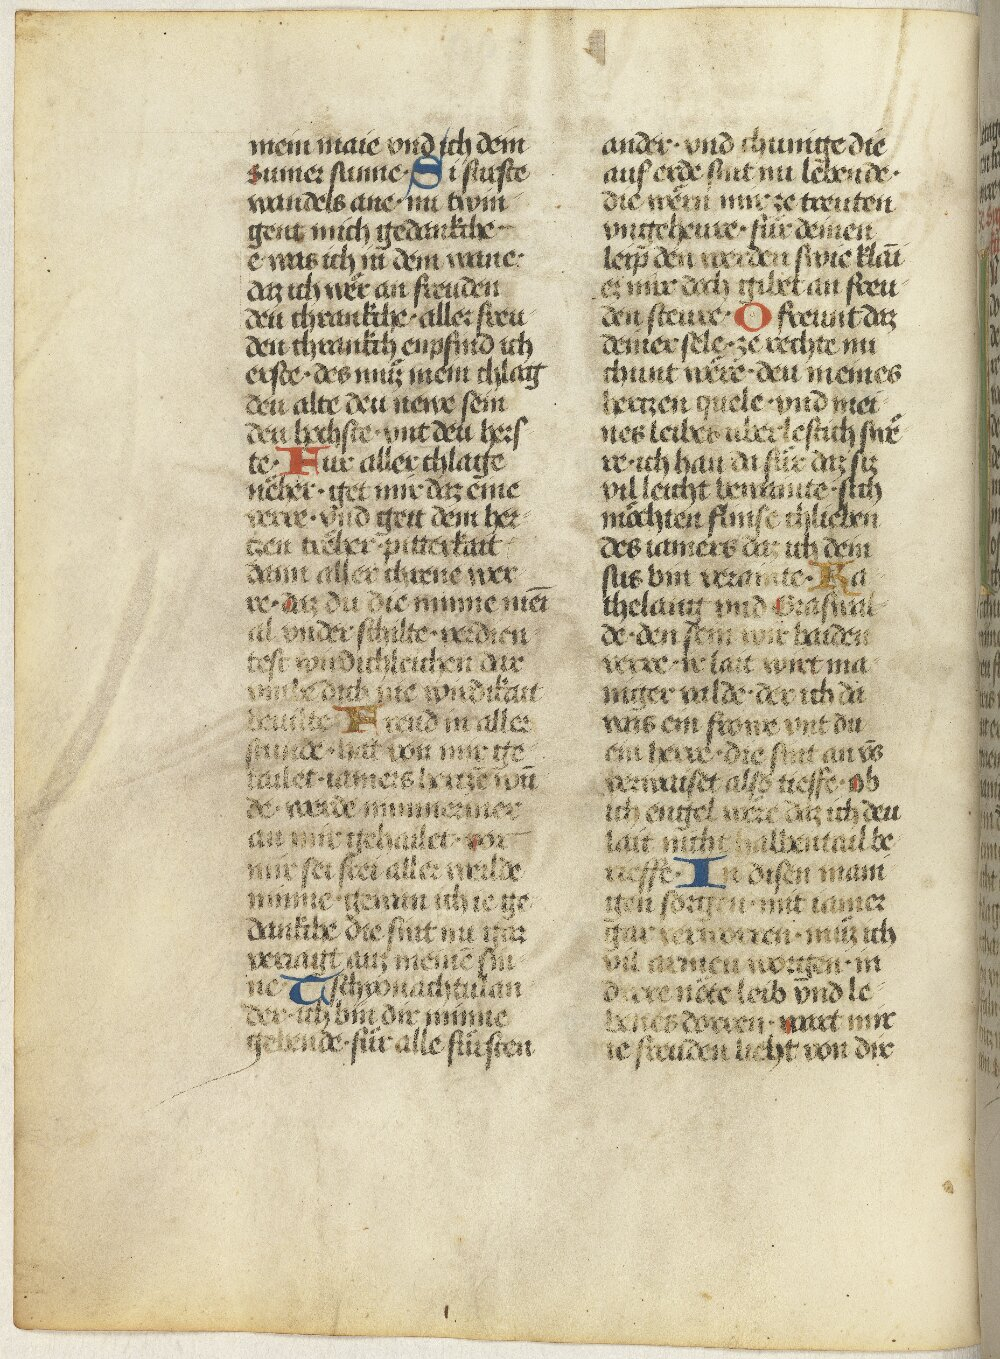 mein maie vnd ich dein
sumer sunne · Si sufte
wandels ane · nu twin
gent mich gedankche
e was ich in dem wane ·
daz ich wer an freuden
den chrankche · aller freu
den chrankch enpfind ich
erste · des muz mein chlag
den alte den newe sein
den hechste · vnt den hers
te · Fur aller chlage
neber · get mir daz eine
verre · vnd geit dem her
tzen treber pitterkait
dann aller chrene wer
re · daz du die minne mei
al vnder schilte · verdien
test wirdichleichen dar
vmbe dich nie wirdikait
beuilte · Freud in aller
stunde · hat von mir ge
tailet · iamers hertze wū
de · werde nimmermer
an mir gehailet · vor
mir sei frei aller werlde
minne · gewan ich ie ge
dankche die sint nu gar
veriagt auz meine sin
ne · Tschionachtulan
der · ich bin dir minne
gebende · für alle fürsten
ander · vnd chunige die
auf erde sint nu lebende ·
die wern mir ze treuten
vngeheure · für deinen
leip den werden swie klai
ez mir doch gibet an freu
den steure · O freunt daz
deiner sele · ze rechte nu
chunt were · den meines
hertzen quele · vnd mei
nes leibes vberlestich swē
re · ich han da für daz siz
vil leicht bewainte · sich
möchten flinse chlieben
des iamers daz ich dem
sus bin verainte · Ka
thelangt vnd Graswal
de · den sein wir baiden
verre · ir lait wirt ma
niger valde · der ich da
was ein frowe vnt du
ein herre · die sint an vns
verwaiset also tieffe · ob
ich engel were daz ich den
lait nicht halbentail be
rieffe · In disen mani
gen sorgen · mit iamer
gar verworren · muz ich
vil armeu worgen · in
dirre nöte leib vnd le
benes dorren · wart mir
ie freuden liecht von dir